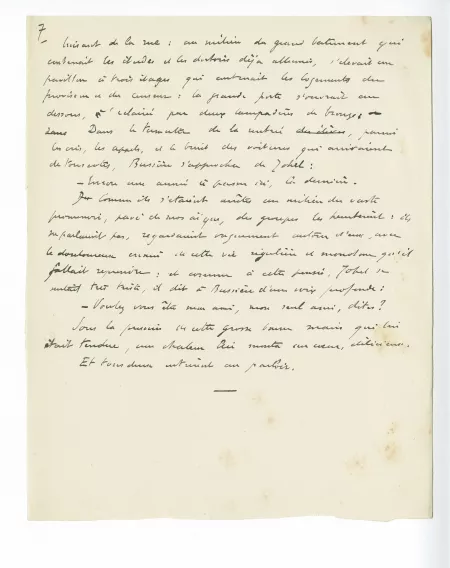 7
de la rue : au milieu du grand bâtiment qui
contenait les études et les dortoirs déjà allumés, s'élevait un
pavillon à trois étages qui contenait les logements du
proviseur et du censeur : la grande porte s'ouvrait au
dessous, éclairée par deux lampadaires de bronze,
Dans le tumulte de la rentrée parmi
les cris, les appels, et le bruit des voitures qui arrivaient
de tous côtés, Bussière s'approcha de Johel :
– Encore une année à passer ici, la dernière.
Comme ils s'étaient arrêtés au milieu du vaste
promenoir, pavé de mosaïque, des groupes les : ils
ne parlaient pas, regardaient vaguement autour d'eux, avec
le douloureux ennui de cette vie régulière et monotone qu'il
fallait reprendre : et comme à cette pensée, Johel se
très triste, il dit à Bussière d'une voix profonde :
– Voulez vous être mon ami, mon seul ami, dites ?
Sous la pression de cette grosse bonne main qui lui
était tendue, une chaleur lui monta au cœur, délicieuse.
Et tous deux entrèrent au parloir.